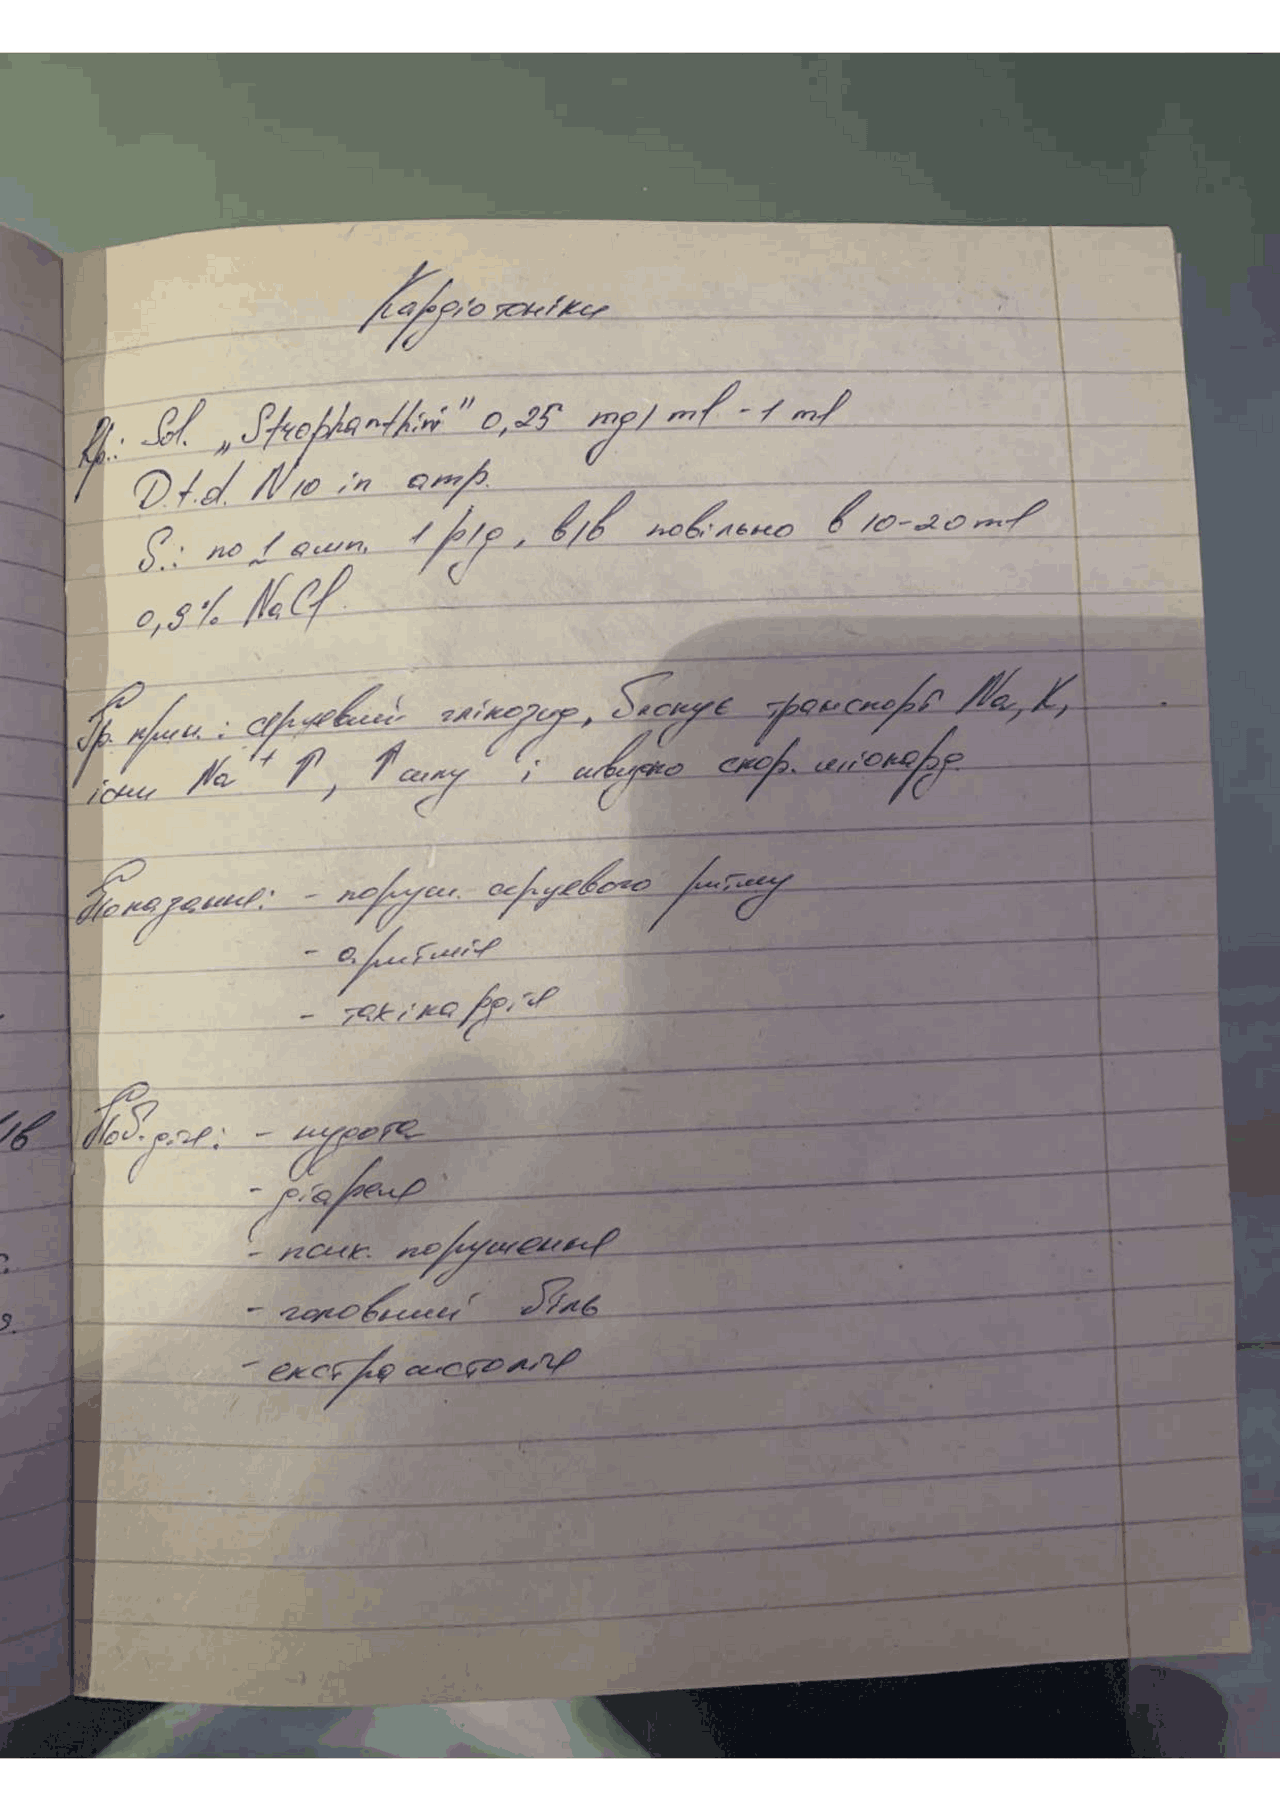 Кардіотоніки
Rp.: Sol. „Strophanthini" 0,25 mg/ml - 1 ml
D.t.d. N 10 in amp.
S.: по 1 амп. 1 р/д, в/в повільно в 10-20 ml
0,9% NaCl.
Гр. прин.: серцевий глікозид, блокує транспорт Na, K,
іони Na⁺ ↑, ↑ силу і швидко скор. міокарда.
Показання: - поруш. серцевого ритму
- аритмія
- тахікардія
/в
Поб. дія: - нудота
- діарея
- псих. порушення
- головний біль
- екстрасистолія